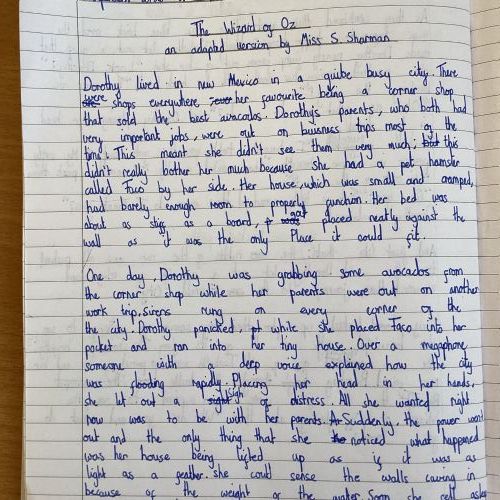 The Wizard of Oz
an adaptd version by Miss S. Sharman
Dorothy lived in new Mexico in a quite busy city. There
were shops everywhere, her favourite being a corner shop
that sold the best avacatos. Dorothy's parents, who both had
very important jobs, were out on buisness trips most of the
time. This meant she didn't see them very much, this
didn't really bother her much because she had a pet hamster
called Taco by her side. Her house, which was small and cramped,
had barely enough room to properly function. Her bed was
about as stiff as a board, placed neatly against the
wall as it was the only Place it could fit.
One day, Dorothy was grabbing some avocados from
the corner shop while her parents were out on another
work trip, Sirens rung on every corner of the
the city. Dorothy panicked, while she placed Taco into her
pocket and ran into her tiny house. Over a megaphone
someone with a deep voice explained how the city
was flooding rapidly. Placing her head in her hands,
she let out a sigh of distress. All she wanted right
now was to be with her parents. Suddenly, the power went
out and the only thing that she noticed what happened
was her house being lifted up as if it was as
light as a feather. She could sense the walls caving in
because of the weight of the water. Soon she